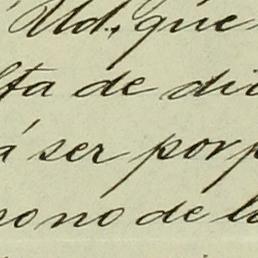 Ud., que
lta de di
á ser por p
ono de l